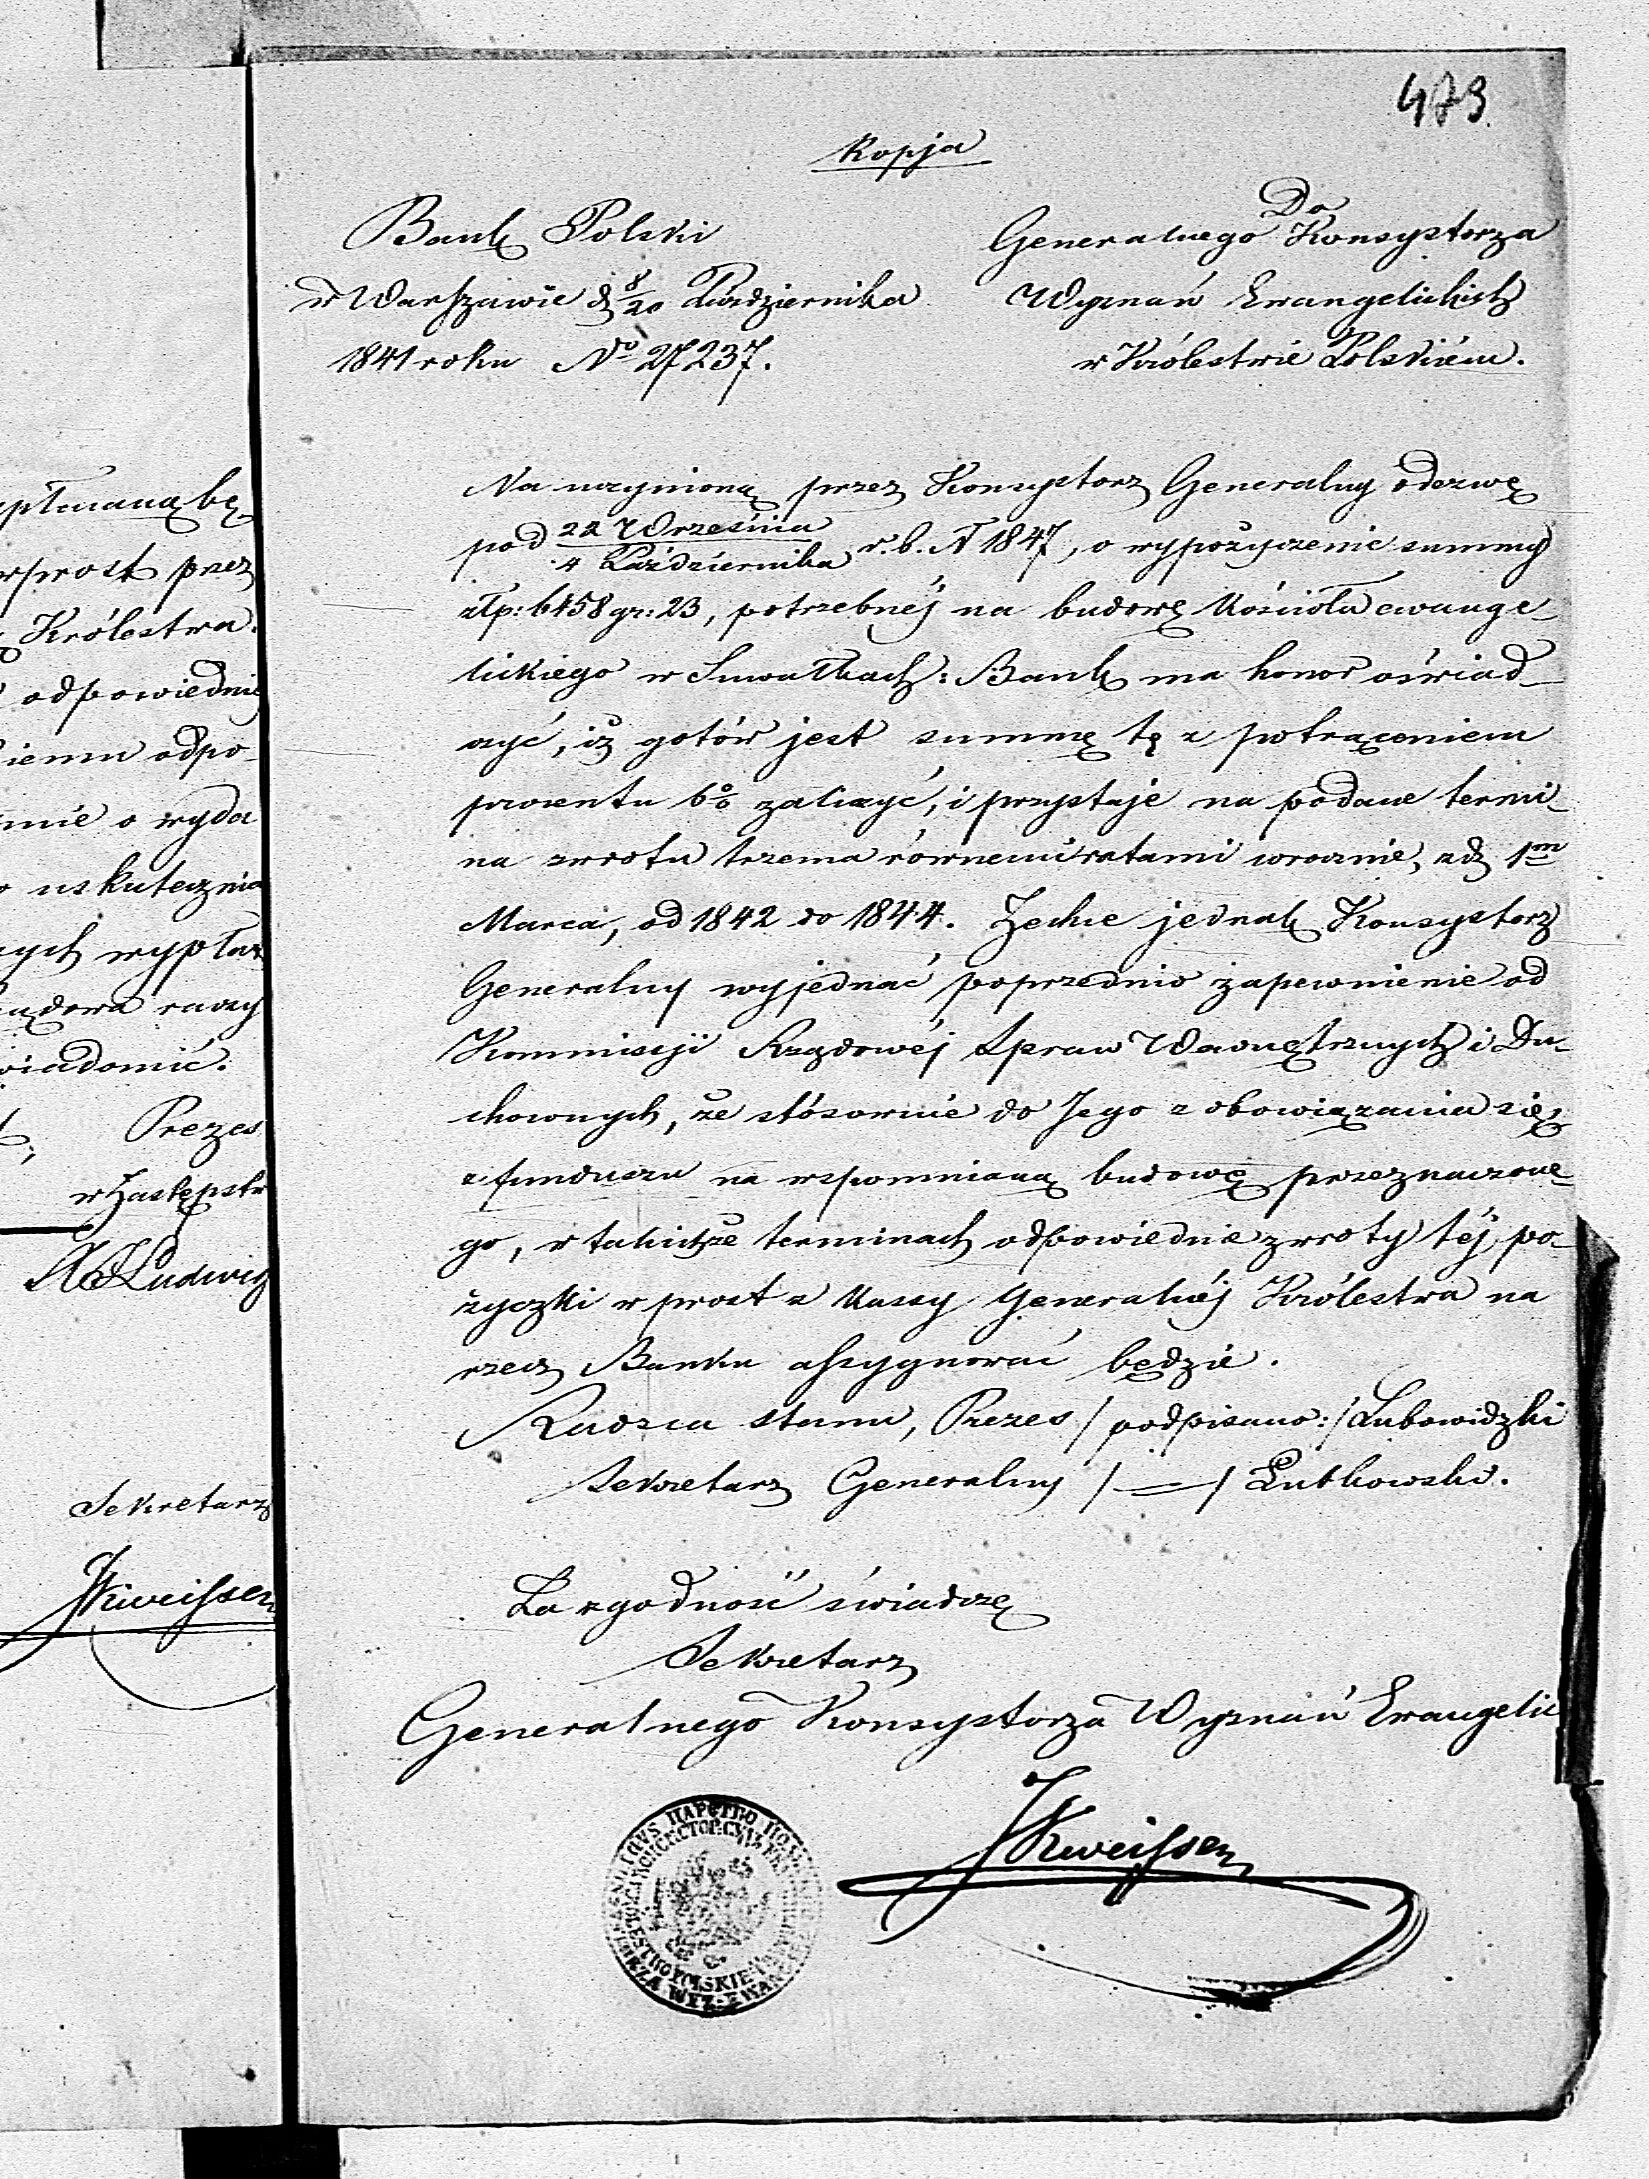 473.
Kopja
Bank Polski
w Warszawie d. 8/20 Października
1841 roku No 27237.
Do
Generalnego Konsystorza
Wyznań Ewangelickich
w Królestwie Polskiém.
Na uczynioną przez Konsystorz Generalny odezwę
pod 22 Września / 4 Października r. b. N 1847, o wypożyczenie summy
złp: 6458 gr: 23, potrzebnéj na budowę Kościoła ewange-
lickiego w Suwałkach: Bank ma honor oświad-
czyć, iż gotów jest summę tę z potrąceniem
procentu 6% zaliczyć, i przystaje na podane termi-
na zwrotu trzema równemi ratami w rocznie, z d. 1m
Marca, od 1842 do 1844. Zechce jednak Konsystorz
Generalny wyjednać poprzednio zapewnienie od
Kommissji Rządowéj Spraw Wewnętrznych i Du-
chownych, że stósownie do Jego zobowiązania się,
z funduszu na wspomnianą budowę przeznaczone-
go, w takichże terminach odpowiednie zwroty téj po-
życzki w prost z Kassy Generalnéj Królestwa na
rzecz Banku assygnować będzie.
Radzca Stanu, Prezes / podpisano: / Lubowidzki
Sekretarz Generalny / — / Łubkowski.
Za zgodność świadczę
Sekretarz
Generalnego Konsystorza Wyznań Ewangelic
JKweissen
ptmaną bę-
wprost przez
Królestwa.
odpowiednie
iemu odpo-
mie o wyda
uskutecznia
ych wypłat
ządowa raczy
wiadomić.
Prezes
w Zastępstw
Ludwig
Sekretarz
JKweissen